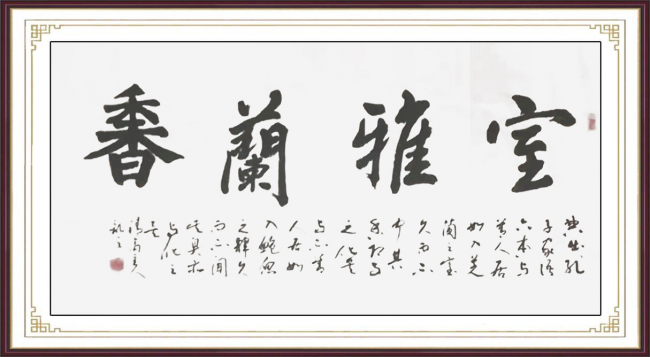 室雅蘭香
典出孔
子家语
六本与
善人居
如入芝
蘭之室
久而不
闻其
香即与
之化矣
与不善
人居如
入鲍鱼
之肆久
而不闻
其臭亦
与化之
矣